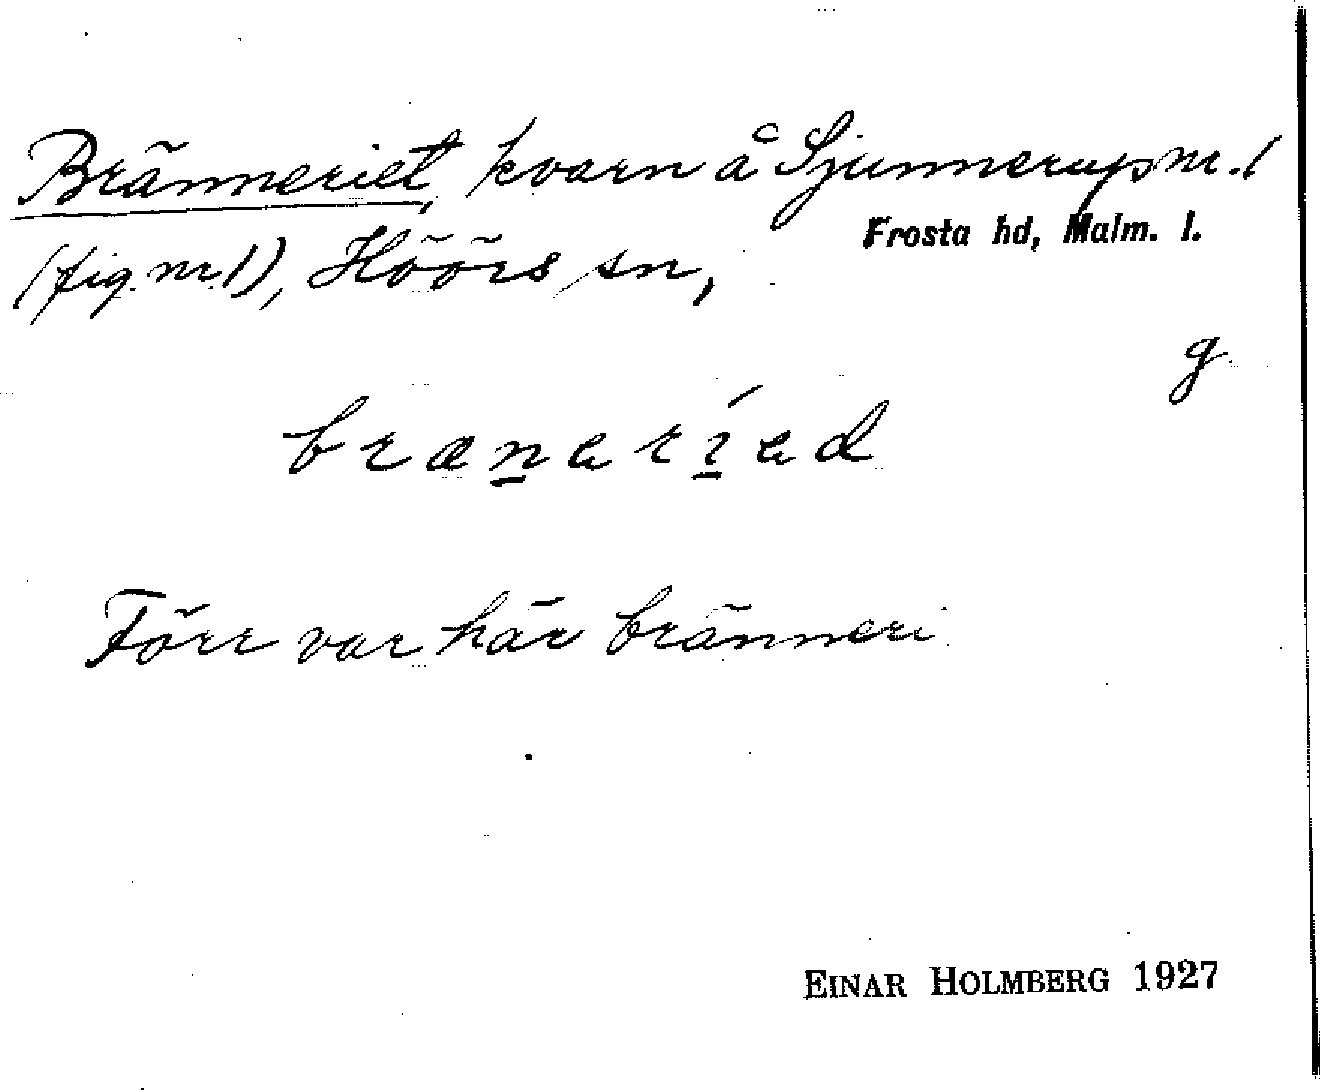 Bränneriet, kvarn å Sjunnerup nr. 1
Frosta hd, Malm. l.
(fig. nr 1), Höörs sn,
g
Förr var här bränneri
EINAR HOLMBERG 1927